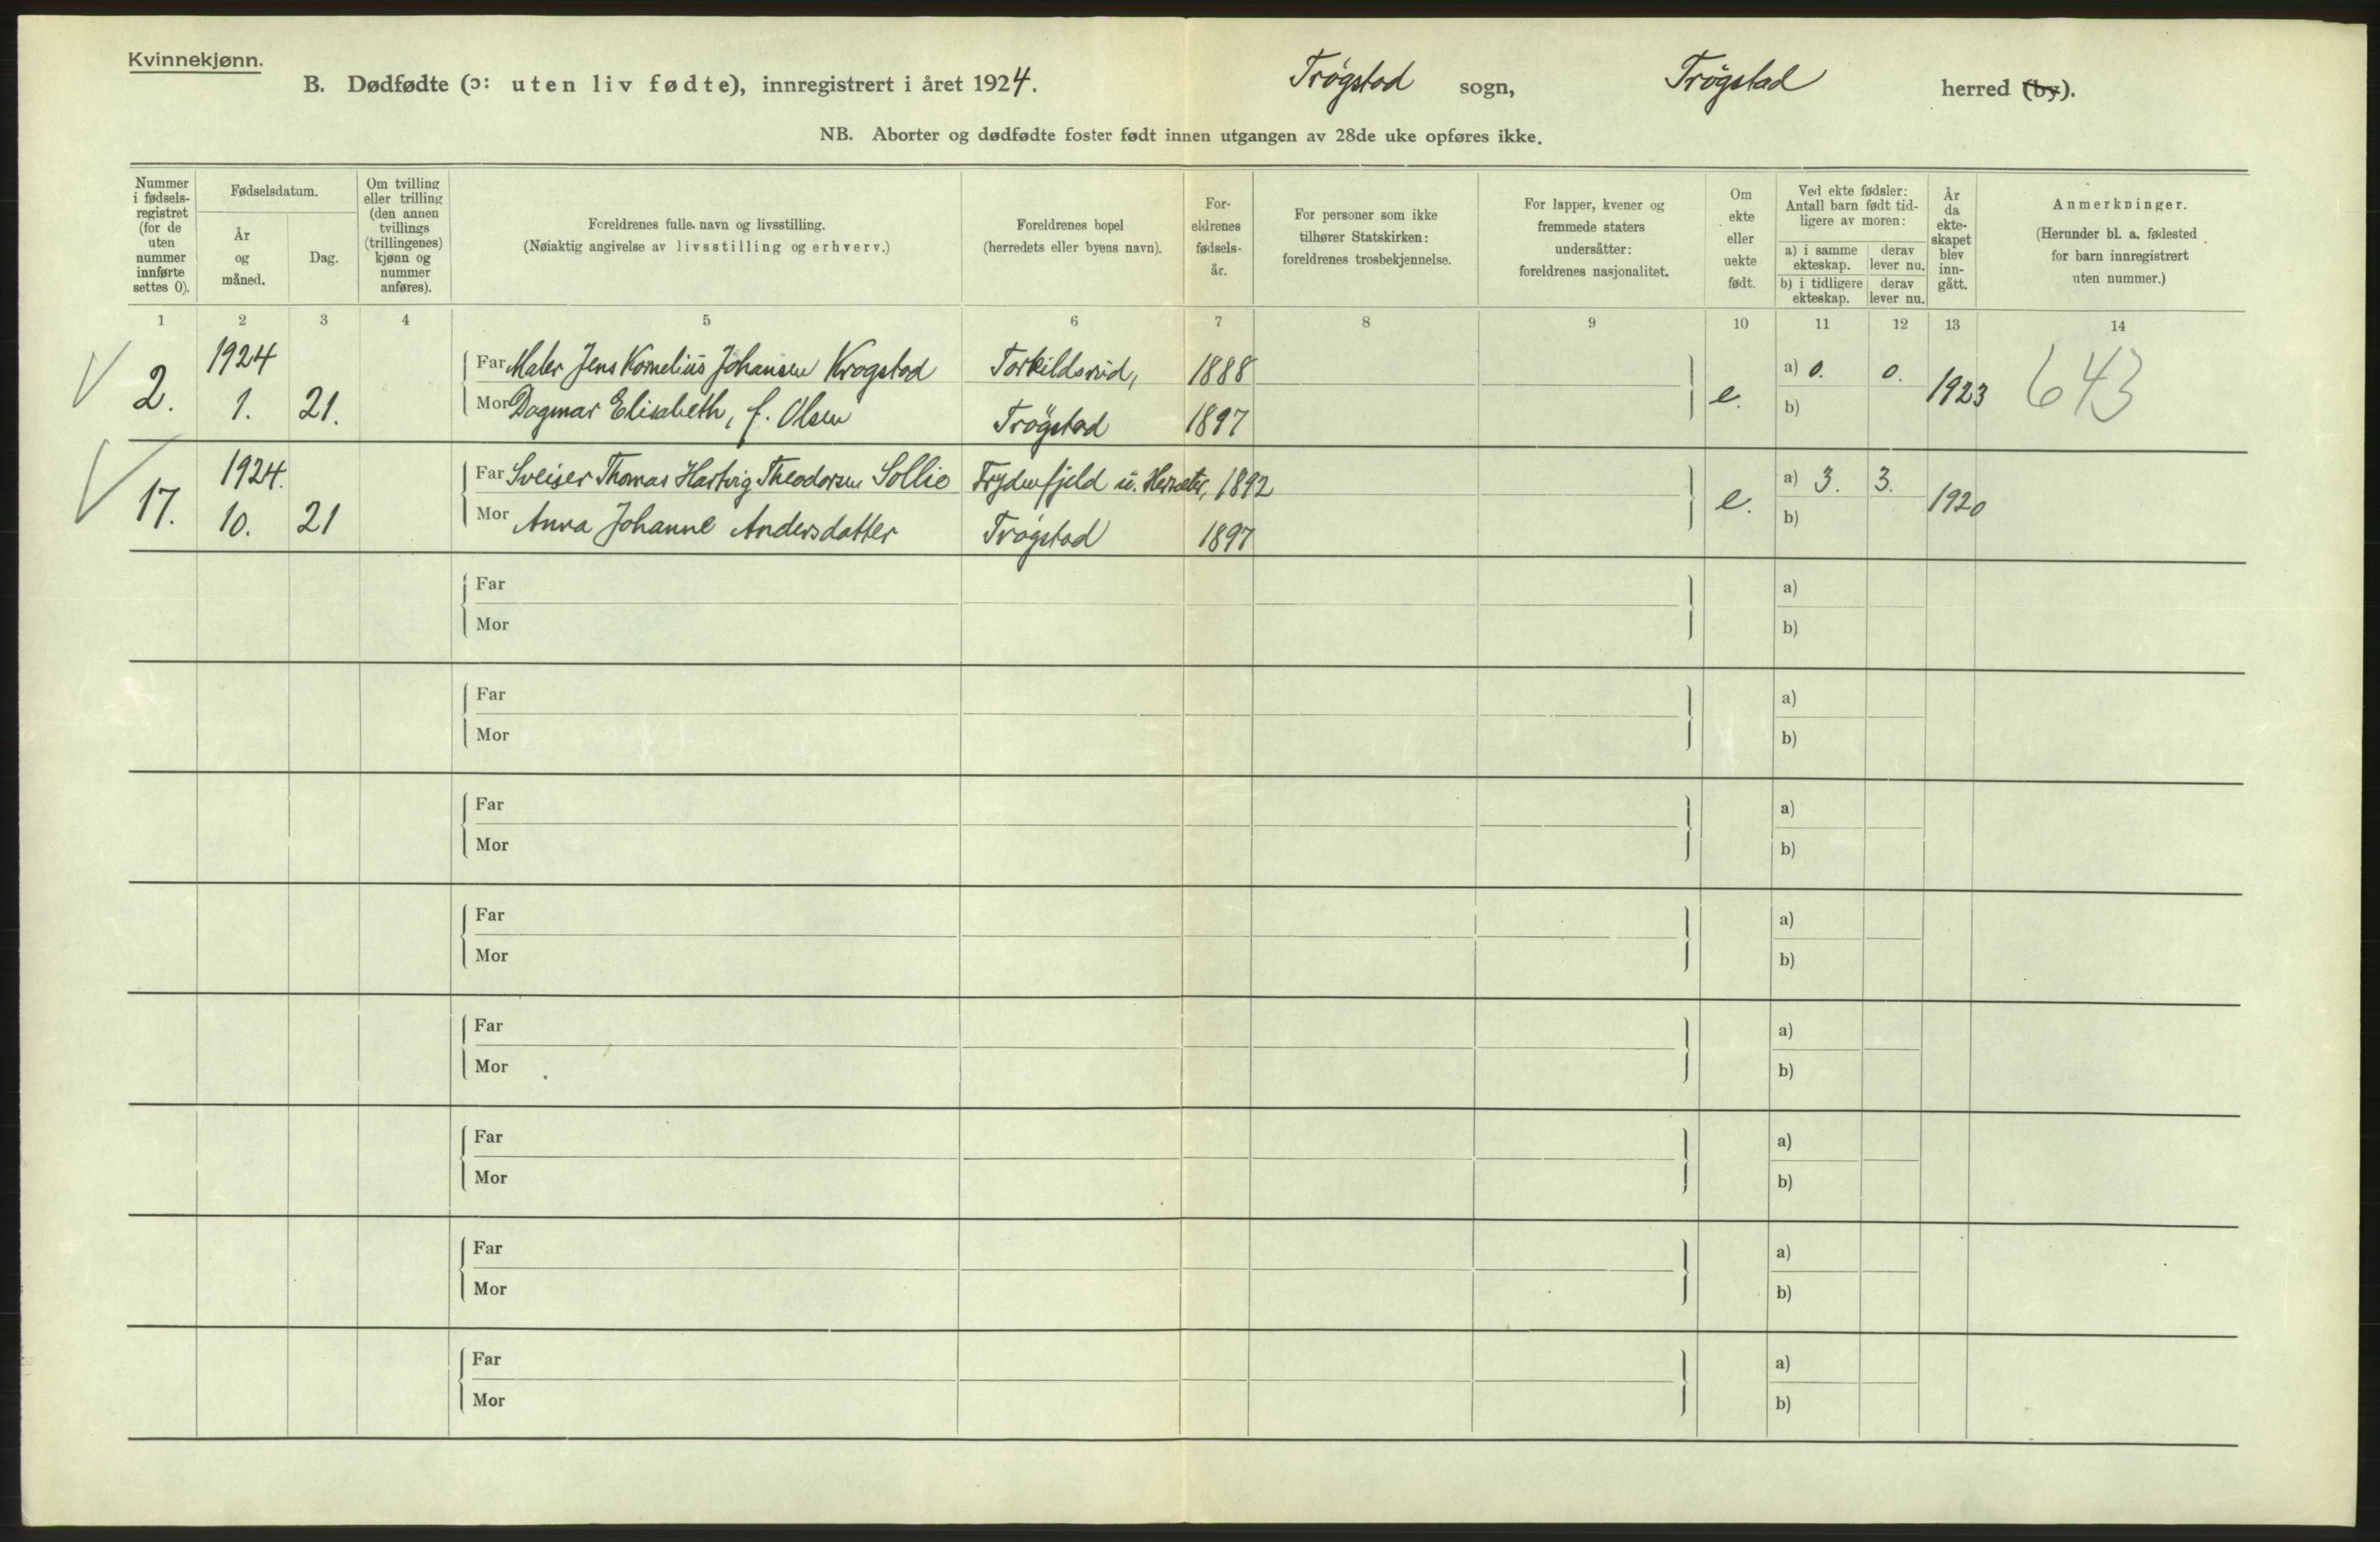 Kvinnekjønn.
B. Dødfødte (ɔ: uten liv fødte), innregistrert i året 1924. Trøgstad sogn, Trøgstad herred (by).
NB. Aborter og dødfødte foster født innen utgangen av 28de uke opføres ikke.
Nummer
i fødsels-
registret
(for de
uten
nummer
innførte
settes 0).
Fødselsdatum.
År
og
måned.
Dag.
Om tvilling
eller trilling
(den annen
tvillings
(trillingenes)
kjønn og
nummer
anføres).
Foreldrenes fulle navn og livsstilling.
(Nøiaktig angivelse av livsstilling og erhverv.)
Foreldrenes bopel
(herredets eller byens navn).
For-
eldrenes
fødsels-
år.
For personer som ikke
tilhører Statskirken:
foreldrenes trosbekjennelse.
For lapper, kvener og
fremmede staters
undersåtter:
foreldrenes nasjonalitet.
Om
ekte
eller
uekte
født.
Ved ekte fødsler:
Antall barn født tid-
ligere av moren:
a) i samme
ekteskap.
derav
lever nu.
b) i tidligere
ekteskap.
derav
lever nu.
År
da
ekte-
skapet
blev
inn-
gått.
Anmerkninger.
(Herunder bl. a. fødested
for barn innregistrert
uten nummer.)
1 2 3 4 5 6 7 8 9 10 11 12 13 14
1924 Far Maler Jens Kornelius Johansen Krogstad Torkildsrud, 1888 a) 0. 0.
2. 1. 21. Mor Dagmar Elisabeth, f. Olsen Trøgstad 1897 e. b) 1923 643
1924. Far Sveiser Thomas Hartvig Theodorsen Sollie Frydenfjeld u. 1892 a) 3. 3.
17. 10. 21 Mor Anna Johanne Andersdatter Trøgstad 1897 e. b) 1920
Far a)
Mor b)
Far a)
Mor b)
Far a)
Mor b)
Far a)
Mor b)
Far a)
Mor b)
Far a)
Mor b)
Far a)
Mor b)
Far a)
Mor b)